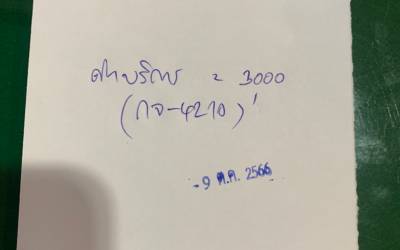 ค่าบริการ = 3000
(กจ-4210)
- 9 ต.ค. 2566